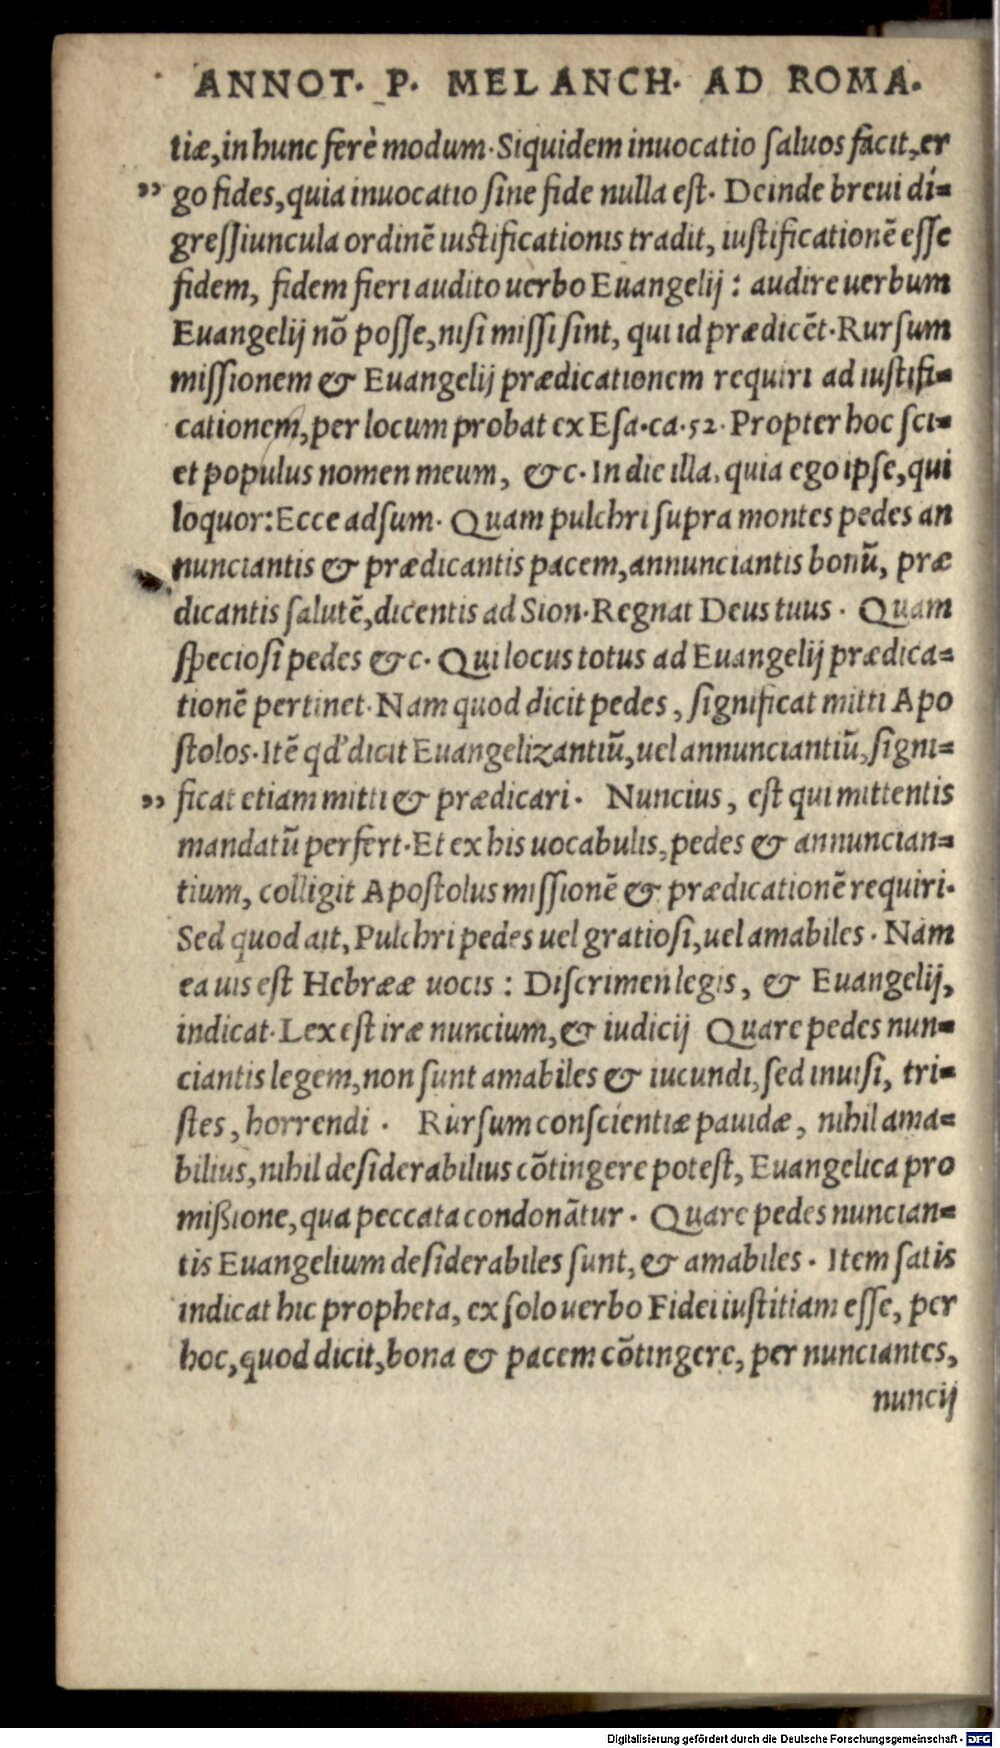 ANNOT. P. MELANCH. AD ROMA.
tiæ, in hunc ferè modum. Siquidem inuocatio saluos facit, er
„ go fides, quia inuocatio sine fide nulla est. Deinde breui di=
gressiuncula ordinē iustificationis tradit, iustificationē esse
fidem, fidem fieri audito uerbo Euangelij : audire uerbum
Euangelij nō posse, nisi missi sint, qui id prædicēt. Rursum
missionem & Euangelij prædicationem requiri ad iustifi=
cationem, per locum probat ex Esa. ca. 52. Propter hoc sci=
et populus nomen meum, &c. In die illa, quia ego ipse, qui
loquor: Ecce adsum. Quam pulchri supra montes pedes an
nunciantis & prædicantis pacem, annunciantis bonū, præ
dicantis salutē, dicentis ad Sion. Regnat Deus tuus. Quam
speciosi pedes &c. Qui locus totus ad Euangelij prædica=
tionē pertinet. Nam quod dicit pedes, significat mitti Apo
stolos. Itē qd' dicit Euangelizantiū, uel annunciantiū, signi=
„ ficat etiam mitti & prædicari. Nuncius, est qui mittentis
mandatū perfert. Et ex his uocabulis, pedes & annuncian=
tium, colligit Apostolus missionē & prædicationē requiri.
Sed quod ait, Pulchri pedes uel gratiosi, uel amabiles. Nam
ea uis est Hebrææ uocis : Discrimen legis, & Euangelij,
indicat. Lex est iræ nuncium, & iudicij Quare pedes nun=
ciantis legem, non sunt amabiles & iucundi, sed inuisi, tri=
stes, horrendi. Rursum conscientiæ pauidæ, nihil ama=
bilius, nihil desiderabilius cōtingere potest, Euangelica pro
mißione, qua peccata condonātur. Quare pedes nuncian=
tis Euangelium desiderabiles sunt, & amabiles. Item satis
indicat hic propheta, ex solo uerbo Fidei iustitiam esse, per
hoc, quod dicit, bona & pacem cōtingere, per nunciantes,
nuncij
Digitalisierung gefördert durch die Deutsche Forschungsgemeinschaft - DFG